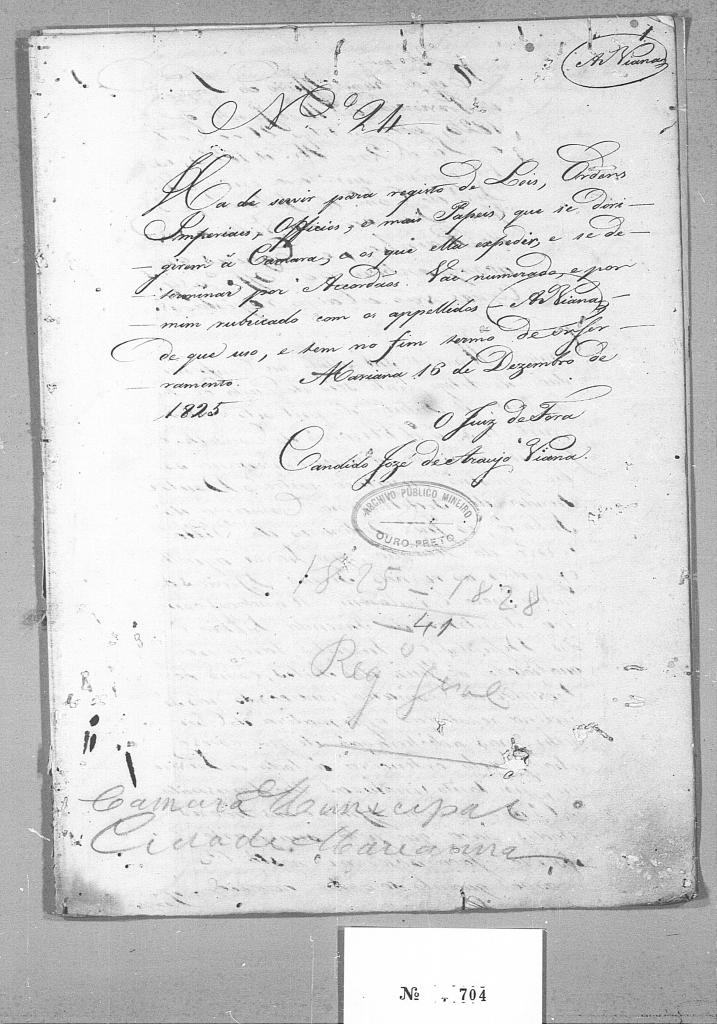 1
A Viana
N.º 24
Ha de servir para registo de Leis, Ordens
Imperiaes, Officios, e mais Papeis, que se deri-
girem á Camara, e os que ella expedir, e se de-
terminar por Accordãos. Vai numerado, e por
mim rubricado com os appellidos - A Viana -
de que uso, e tem no fim termo de encer-
ramento. Mariana 16 de Dezembro de
1825
O Juiz de Fora
Candido Jozé de Araujo Viana.
ARCHIVO PÚBLICO MINEIRO
OURO PRETO
1825-1828
41
Reg Geral
Camara Municipal
Cidade Marianna
Nº 704